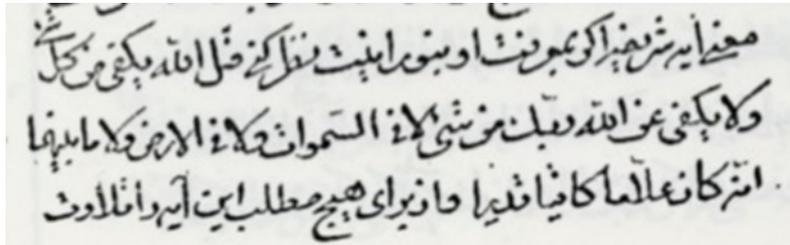 معنی آیه شریفه را اینست قل الله یکفی من کل شئ
ولا یکفی عن الله ربک من شئ لا فی السموات ولا فی الارض ولا ما بینهما
انه کان علاما کافیا قدیرا و از برای هیچ مطلب این آیه را تلاوت